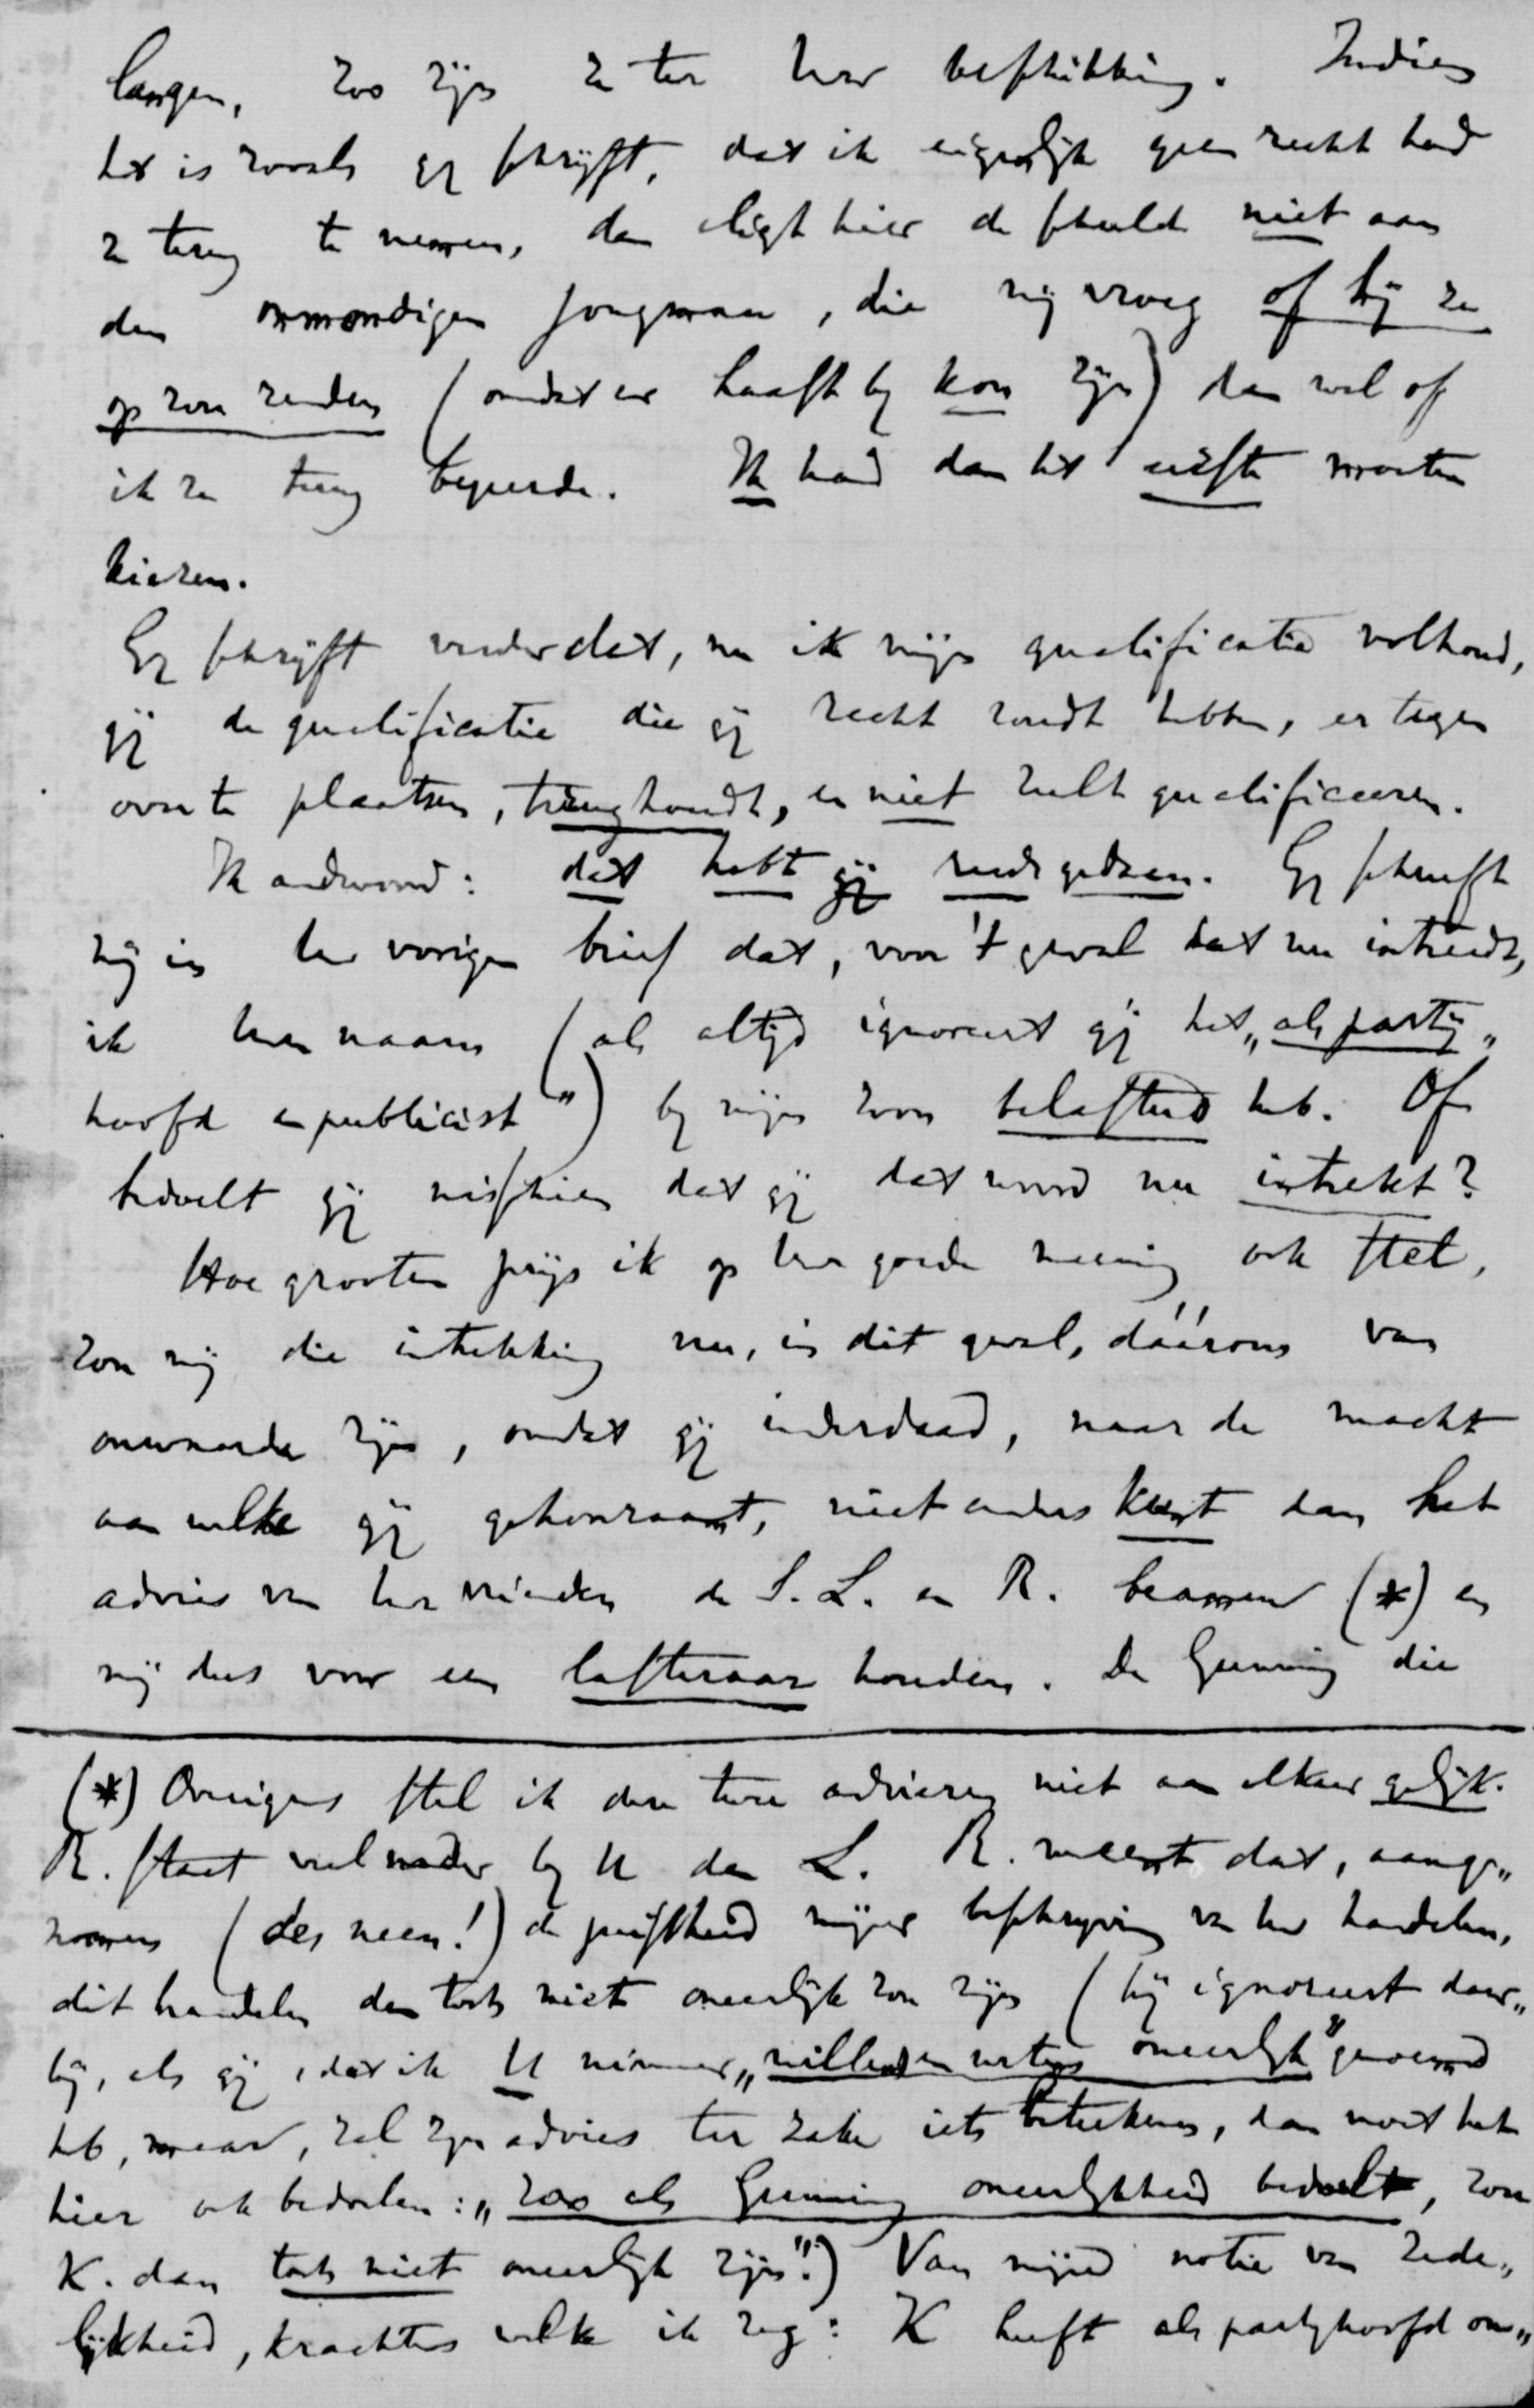 langen, zoo zijn ze ter Uwer beschikking. Indien
het is zooals gij schrijft, dat ik eigenlijk geen recht had
ze terug te nemen, dan ligt hier de schuld niet aan
den onmondigen jongman, die mij vroeg of hij ze
op zou zenden (omdat er haast bij kon zijn) dan wel of
ik ze terug begeerde. Ik had dan het eerste moeten
kiezen.
Gij schrijft verder dat, nu ik mijn qualificatie volhoud,
gij de qualificatie die gij recht zoudt hebben, er tegen
over te plaatsen, terughoudt, en niet zult qualificeeren.
Ik andwoord: dat hebt gij reeds gedaan. Gij schreeft
mij in Uw vorigen brief dat, voor 't geval dat nu intreedt,
ik Uwen naam (als altijd ignoreert gij het „als partij„
hoofd en publicist") bij mijn zoon belasterd heb. Of
bedoelt gij misschien dat gij dat woord nu intrekt?
Hoe grooten prijs ik op Uwe goede meening ook stel,
zou mij die intrekking nu, in dit geval, dáárom van
onwaarde zijn, omdat gij inderdaad, naar de macht
aan welke gij gehoorzaamt, niet anders kunt dan het
advies van Uwe vrienden de S. L. en R. beamen (*) en
mij dus voor een lasteraar houden. De Gunning die
(*) Overigens stel ik deze twee adviezen niet aan elkaar gelijk.
R. staat veel nader bij U dan L. R. meent dat, aange„
nomen (des neen!) de juistheid mijner beschrijving van Uw handelen,
dit handelen dan toch niet oneerlijk zou zijn (hij ignoreert daar„
bij, als gij, dat ik U nimmer „willens en wetens oneerlijk" genoemd
heb, maar, zal zijn advies ter zake iets beteekenen, dan moet het
hier ook bedoelen: „zoo als Gunning oneerlijkheid bedoelt, zou
K. dan toch niet oneerlijk zijn".) Van mijne notie van zede„
lijkheid, krachtens welke ik zeg: K heeft als partijhoofd on„